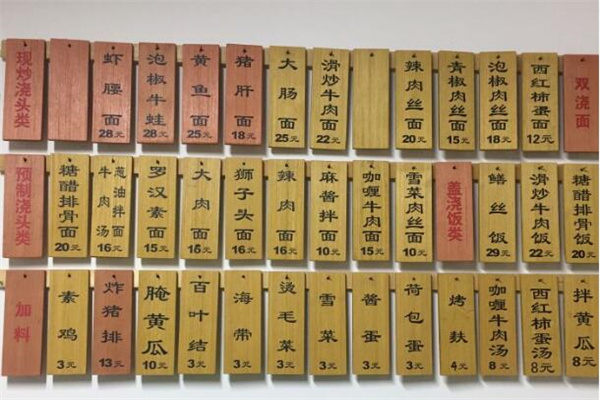 现炒浇头类
虾腰面
28元
泡椒牛蛙
28元
黄鱼面
25元
猪肝面
18元
大肠面
25元
滑炒牛肉面
22元
辣肉丝面
20元
青椒肉丝面
15元
泡椒肉丝面
18元
西红柿蛋面
12元
双浇面
预制浇头类
糖醋排骨面
20元
葱油拌面
牛肉汤
16元
罗汉素面
15元
大肉面
16元
狮子头面
16元
辣肉面
16元
麻酱拌面
10元
咖喱牛肉面
15元
雪菜肉丝面
10元
盖浇饭类
鳝丝饭
29元
滑炒牛肉饭
22元
糖醋排骨饭
20元
加料
素鸡
3元
炸猪排
13元
腌黄瓜
10元
百叶结
3元
海带
3元
烫毛菜
3元
雪菜
3元
酱蛋
3元
荷包蛋
3元
烤麸
4元
咖喱牛肉汤
8元
西红柿蛋汤
8元
拌黄瓜
8元